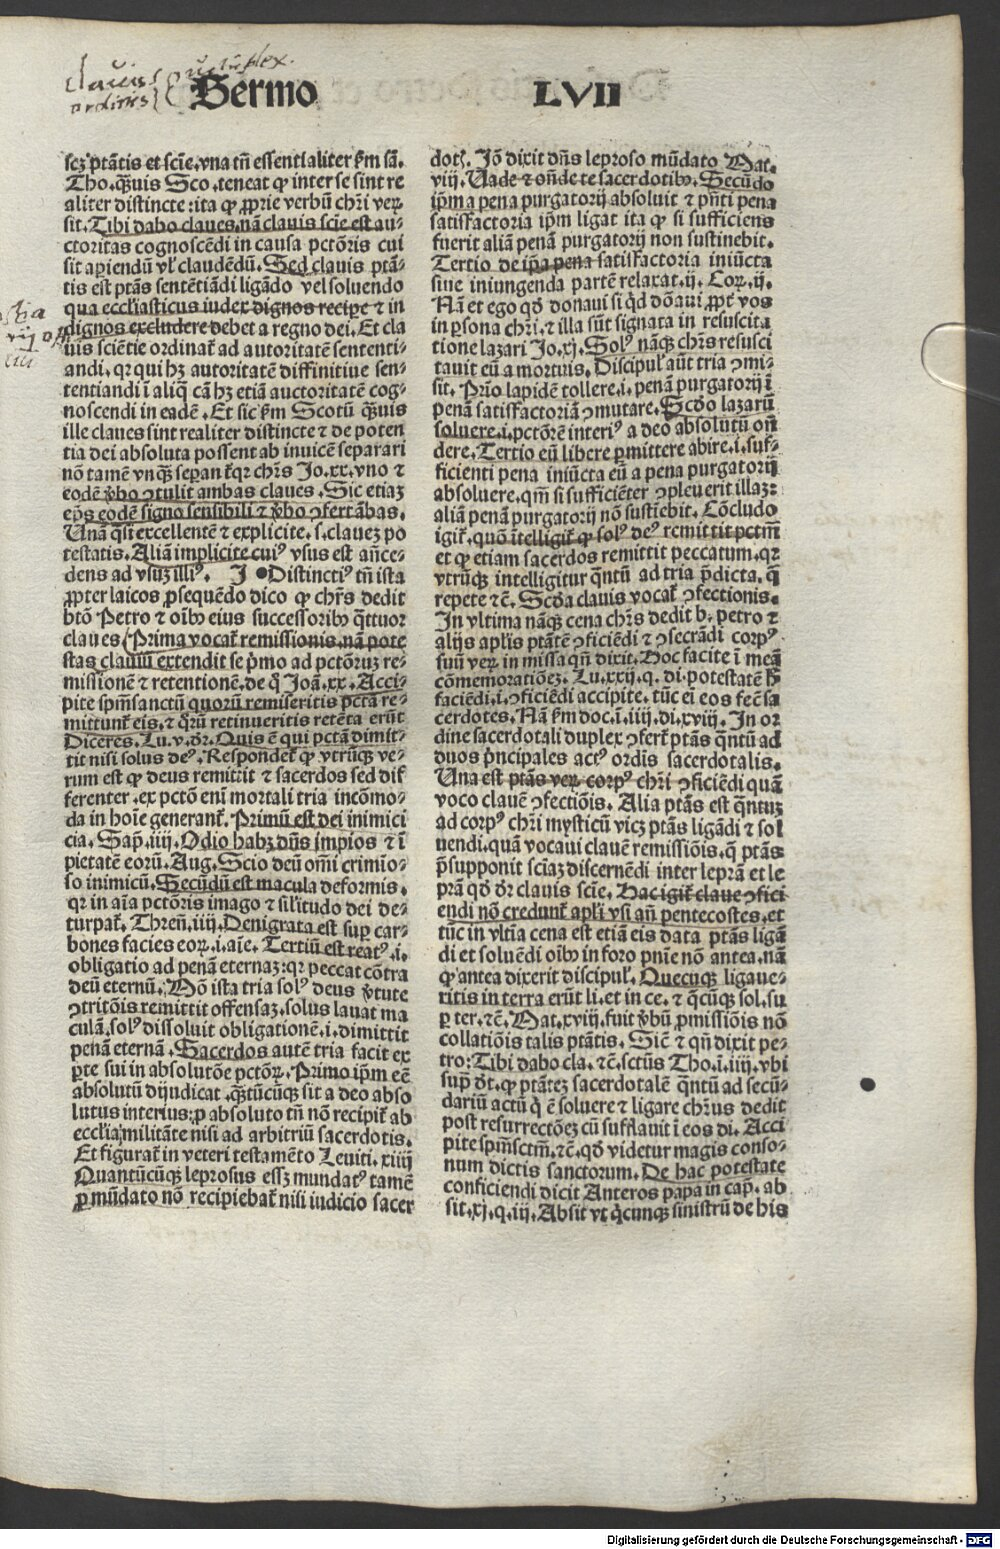 clauis
ordinis
quituplex.
Sermo LVII
scz ptātis et scīe. vna tn̄ essentialiter ẜm sā.
Tho. q̄uis Sco. teneat ꝙ inter se sint re
aliter distincte: ita ꝙ ꝓprie verbū chr̄i veꝝ
sit. Tibi dabo claues. nā clauis scīe est au⸗
ctoritas cognoscēdi in causa pctōris cui
sit aꝑiendū vl̓ claudēdū. Sed clauis ptā⸗
tis est ptās sentētiādi ligādo vel soluendo
qua eccl̓iasticus iudex dignos recipe ⁊ in
dignos excludere debet a regno dei. Et cla
uis sciētie ordinat̄ ad autoritatē sententi⸗
andi. qꝛ qui hꝫ autoritatē diffinitiue sen⸗
tentiandi ī aliq̄ cā hꝫ etiā auctoritatē cog⸗
noscendi in eadē. Et sic ẜm Scotū q̄uis
ille claues sint realiter distincte ⁊ de poten
tia dei absoluta possent ab inuicē separari
nō tamē vnq̄ꝫ seꝑant̄ qꝛ chr̄s Jo. xx. vno ⁊
eodē v̄bo ꝯtulit ambas claues. Sic etiaꝫ
ep̄s eodē signo sensibili ⁊ v̄bo ꝯfert ābas.
Unā q̄si excellentē ⁊ explicite. s. clauez po
testatis. Aliā implicite cuiꝰ vsus est an̄ce⸗
dens ad vsuꝫ illiꝰ. J Distinctiꝰ tn̄ ista
ꝓpter laicos ꝓsequēdo dico ꝙ chr̄s dedit
btō Petro ⁊ oībꝰ eius successoribꝰ q̄ttuor
claues Prima vocat̄ remissionis. nā pote
stas clauiū extendit se p̄mo ad pctōruꝫ re⸗
missionē ⁊ retentionē. de q̄ Joā. xx. Acci⸗
pite spm̄sanctū quorū remiseritis pctā re⸗
mittunt̄ eis. ⁊ q̄rū retinueritis retēta erūt
Diceres. Lu. v. dꝛ. Quis ē qui pctā dimit⸗
tit nisi solus deꝰ. Respondet̄ ꝙ vtrūqꝫ ve⸗
rum est ꝙ deus remittit ⁊ sacerdos sed dif
ferenter. ex pctō eni mortali tria incōmo⸗
da in hoīe generant̄. Primū est dei inimici
cia. Sap̄. iiij. Odio habꝫ dn̄s impios ⁊ ī
pietatē eorū. Aug. Scio deū om̄i crimio⸗
so inimicū. Secūdū est macula deformis.
qꝛ in aīa pctōris imago ⁊ sil̓itudo dei de⸗
turpat̄. Thren̄. iiij. Denigrata est sup car⸗
bones facies eoꝝ. i. aīe. Tertiū est reatꝰ. i.
obligatio ad penā eternaꝫ: qꝛ peccat cōtra
deū eternū. Mō ista tria solꝰ deus v̄tute
ꝯtritōis remittit offensaꝫ. solus lauat ma
culā. solꝰ dissoluit obligationē. i. dimittit
penā eternā. Sacerdos autē tria facit ex
ꝑte sui in absolutōe pctōꝝ. Primo ip̄m eē
absolutū dijudicat. q̄tūcūqꝫ sit a deo abso
lutus interius: ꝑ absoluto tn̄ nō recipit̄ ab
eccl̓ia militāte nisi ad arbitriū sacerdotis.
Et figurat̄ in veteri testamēto Leuiti. xiiij
Quantūcūqꝫ leprosus essꝫ mundatꝰ tamē
ꝑ mūdato nō recipiebat̄ nisi iudicio sacer
dotꝭ. Jō dixit dn̄s leproso mūdato Mat.
viij. Uade ⁊ on̄de te sacerdotibꝰ. Secūdo
ip̄m a pena purgatorij absoluit ⁊ pn̄ti pena
satisfactoria ip̄m ligat ita ꝙ si sufficiens
fuerit aliā penā purgatorij non sustinebit.
Tertio de ip̄a pena satisfactoria iniūcta
siue iniungenda partē relaxat. ij. Coꝝ. ij.
Nā et ego qd̓ donaui si q̄d dōaui ꝓpt̄ vos
in ꝑsona chr̄i. ⁊ illa sūt signata in resuscita
tione lazari Jo. xj. Solꝰ nāqꝫ chr̄s resusci
tauit eū a mortuis. Discipul̓ aūt tria ꝯmi⸗
sit. Prīo lapidē tollere. i. penā purgatorij ī
penā satisfactoriā ꝯmutare. Scd̓o lazarū
soluere. i. pctōrē interiꝰ a deo absolutū on̄
dere. Tertio eū libere ꝑmittere abire. i. suf⸗
ficienti pena iniūcta eū a pena purgatorij
absoluere. qm̄ si sufficiēter ꝯpleuerit illaꝫ:
aliā penā purgatorij nō sustīebit. Cōcludo
igit̄. quō ītelligit̄ ꝙ solꝰ deꝰ remittit pctm̄
et ꝙ etiam sacerdos remittit peccatum. qꝛ
vtrūqꝫ intelligitur q̄ntū ad tria p̄dicta. q̄
repete ⁊c̄. Scd̓a clauis vocat̄ ꝯfectionis.
In vltima nāqꝫ cena chr̄s dedit b. petro ⁊
alijs apl̓is ptātē ꝯficiēdi ⁊ ꝯsecrādi corpꝰ
suū veꝝ in missa qn̄ dixit. Hoc facite ī meā
cōmemoratiōeꝫ. Lu. xxij. q. di. potestatē ẜ
faciēdi. i. ꝯficiēdi accipite. tūc ei eos fec̄ sa
cerdotes. Nā ẜm doc. i. iiij. di. xviij. In or
dine sacerdotali duplex ꝯfert̄ ptās q̄ntū ad
duos p̄ncipales actꝰ ordīs sacerdotalis.
Una est ptās veꝝ corpꝰ chr̄i ꝯficiēdi quā
voco clauē ꝯfectiōis. Alia ptās est q̄ntuꝫ
ad corpꝰ chr̄i mysticū vicꝫ ptās ligādi ⁊ sol
uendi. quā vocaui clauē remissiōis. q̄ ptās
p̄supponit sciaꝫ discernēdi inter leprā et le
prā qd̓ dꝛ clauis scīe. Hac igit̄ claue ꝯfici
endi nō credunt̄ apl̓i vsi an̄ pentecostes. et
tūc in vltīa cena est etiā eis data ptās ligā
di et soluēdi oībꝰ in foro pnīe nō antea. nā
ꝙ antea dixerit discipul̓. Quecūqꝫ ligaue⸗
ritis in terra erūt li. et in ce. ⁊ q̄cūqꝫ sol. su
ꝑ ter. ⁊c̄. Mat. xviij. fuit v̄bū ꝓmissiōis nō
collatiōis talis ptātis. Sic̄ ⁊ qn̄ dixit pe⸗
tro: Tibi dabo cla. ⁊c̄. sctūs Tho. ī. iiij. vbi
sup̄ dꝛ. ꝙ ptāteꝫ sacerdotalē q̄ntū ad secū⸗
dariū actū q̄ ē soluere ⁊ ligare chr̄us dedit
post resurrectōeꝫ cū sufflauit ī eos di. Acci
pite spm̄sctm̄. ⁊c̄. qd̓ videtur magis conso⸗
num dictis sanctorum. De hac potestate
conficiendi dicit Anteros papa in cap̄. ab
sit. xj. q. iij. Absit vt q̄cunqꝫ sinistrū de his
Digitalisierung gefördert durch die Deutsche Forschungsgemeinschaft - DFG